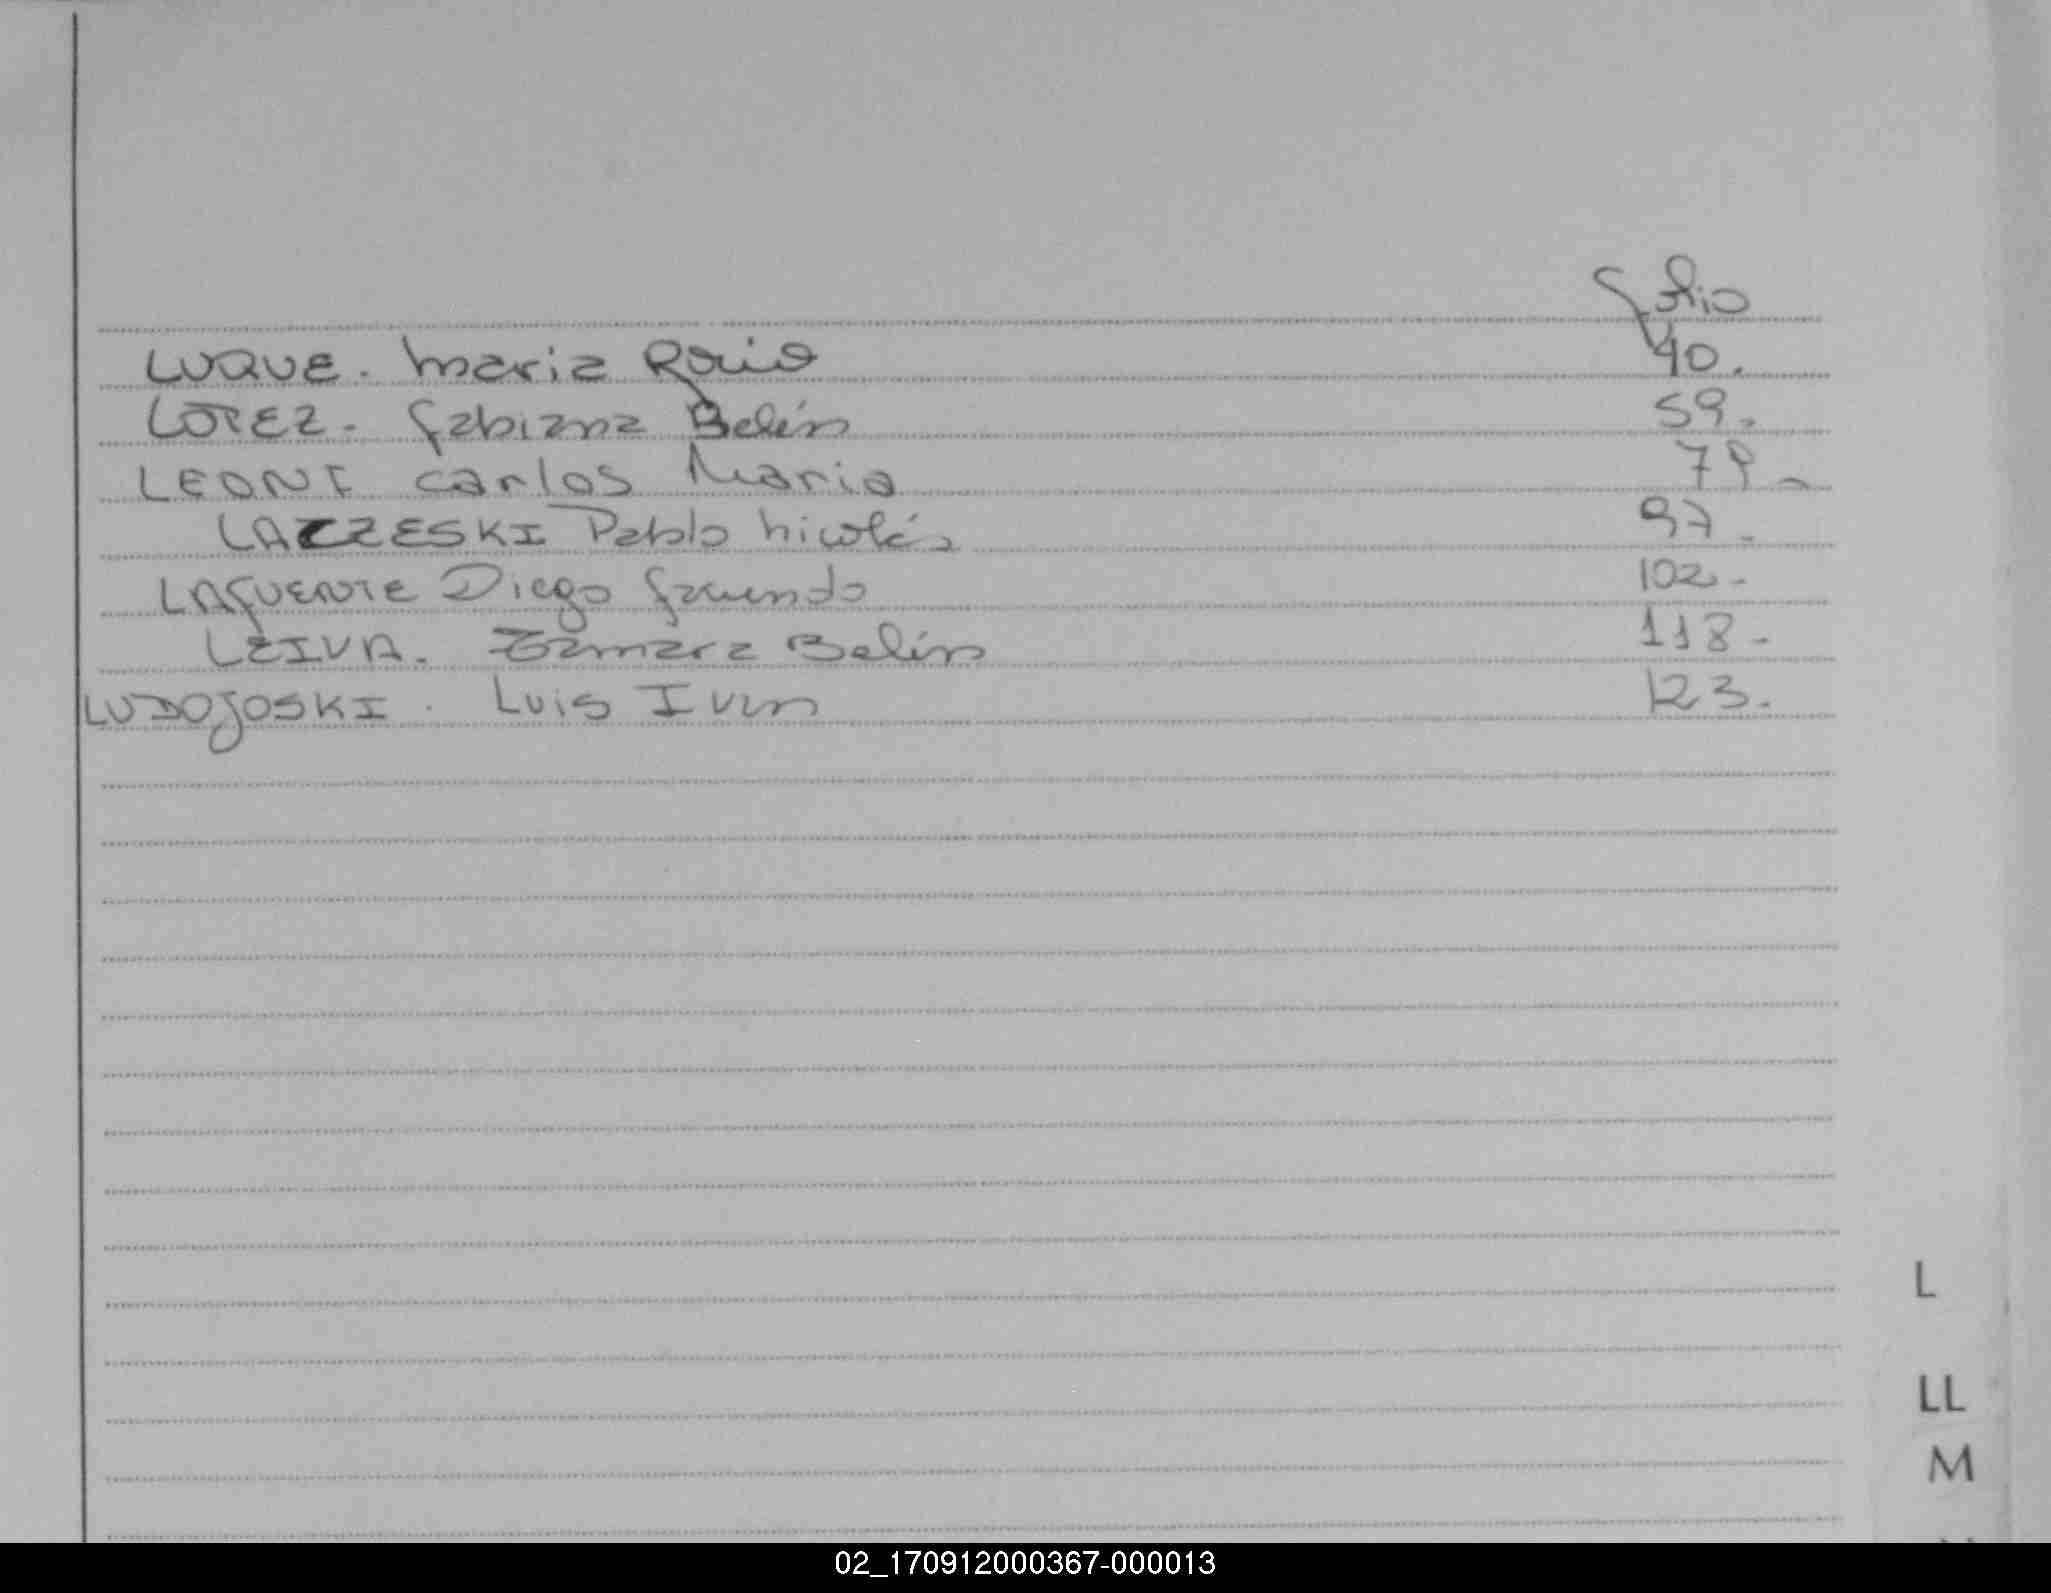 folio
LUQUE. Maria Rocio 40.
LOPEZ. Fabiana Belén 59.
LEONI Carlos Maria 79-
LAZZESKI Pablo Nicolás 97.
LAFUENTE Diego Facundo 102-
LEIVA. Tamara Belén 118-
LUDOJOSKI. Luis Ivan 123.
L
LL
M
02_170912000367-000013